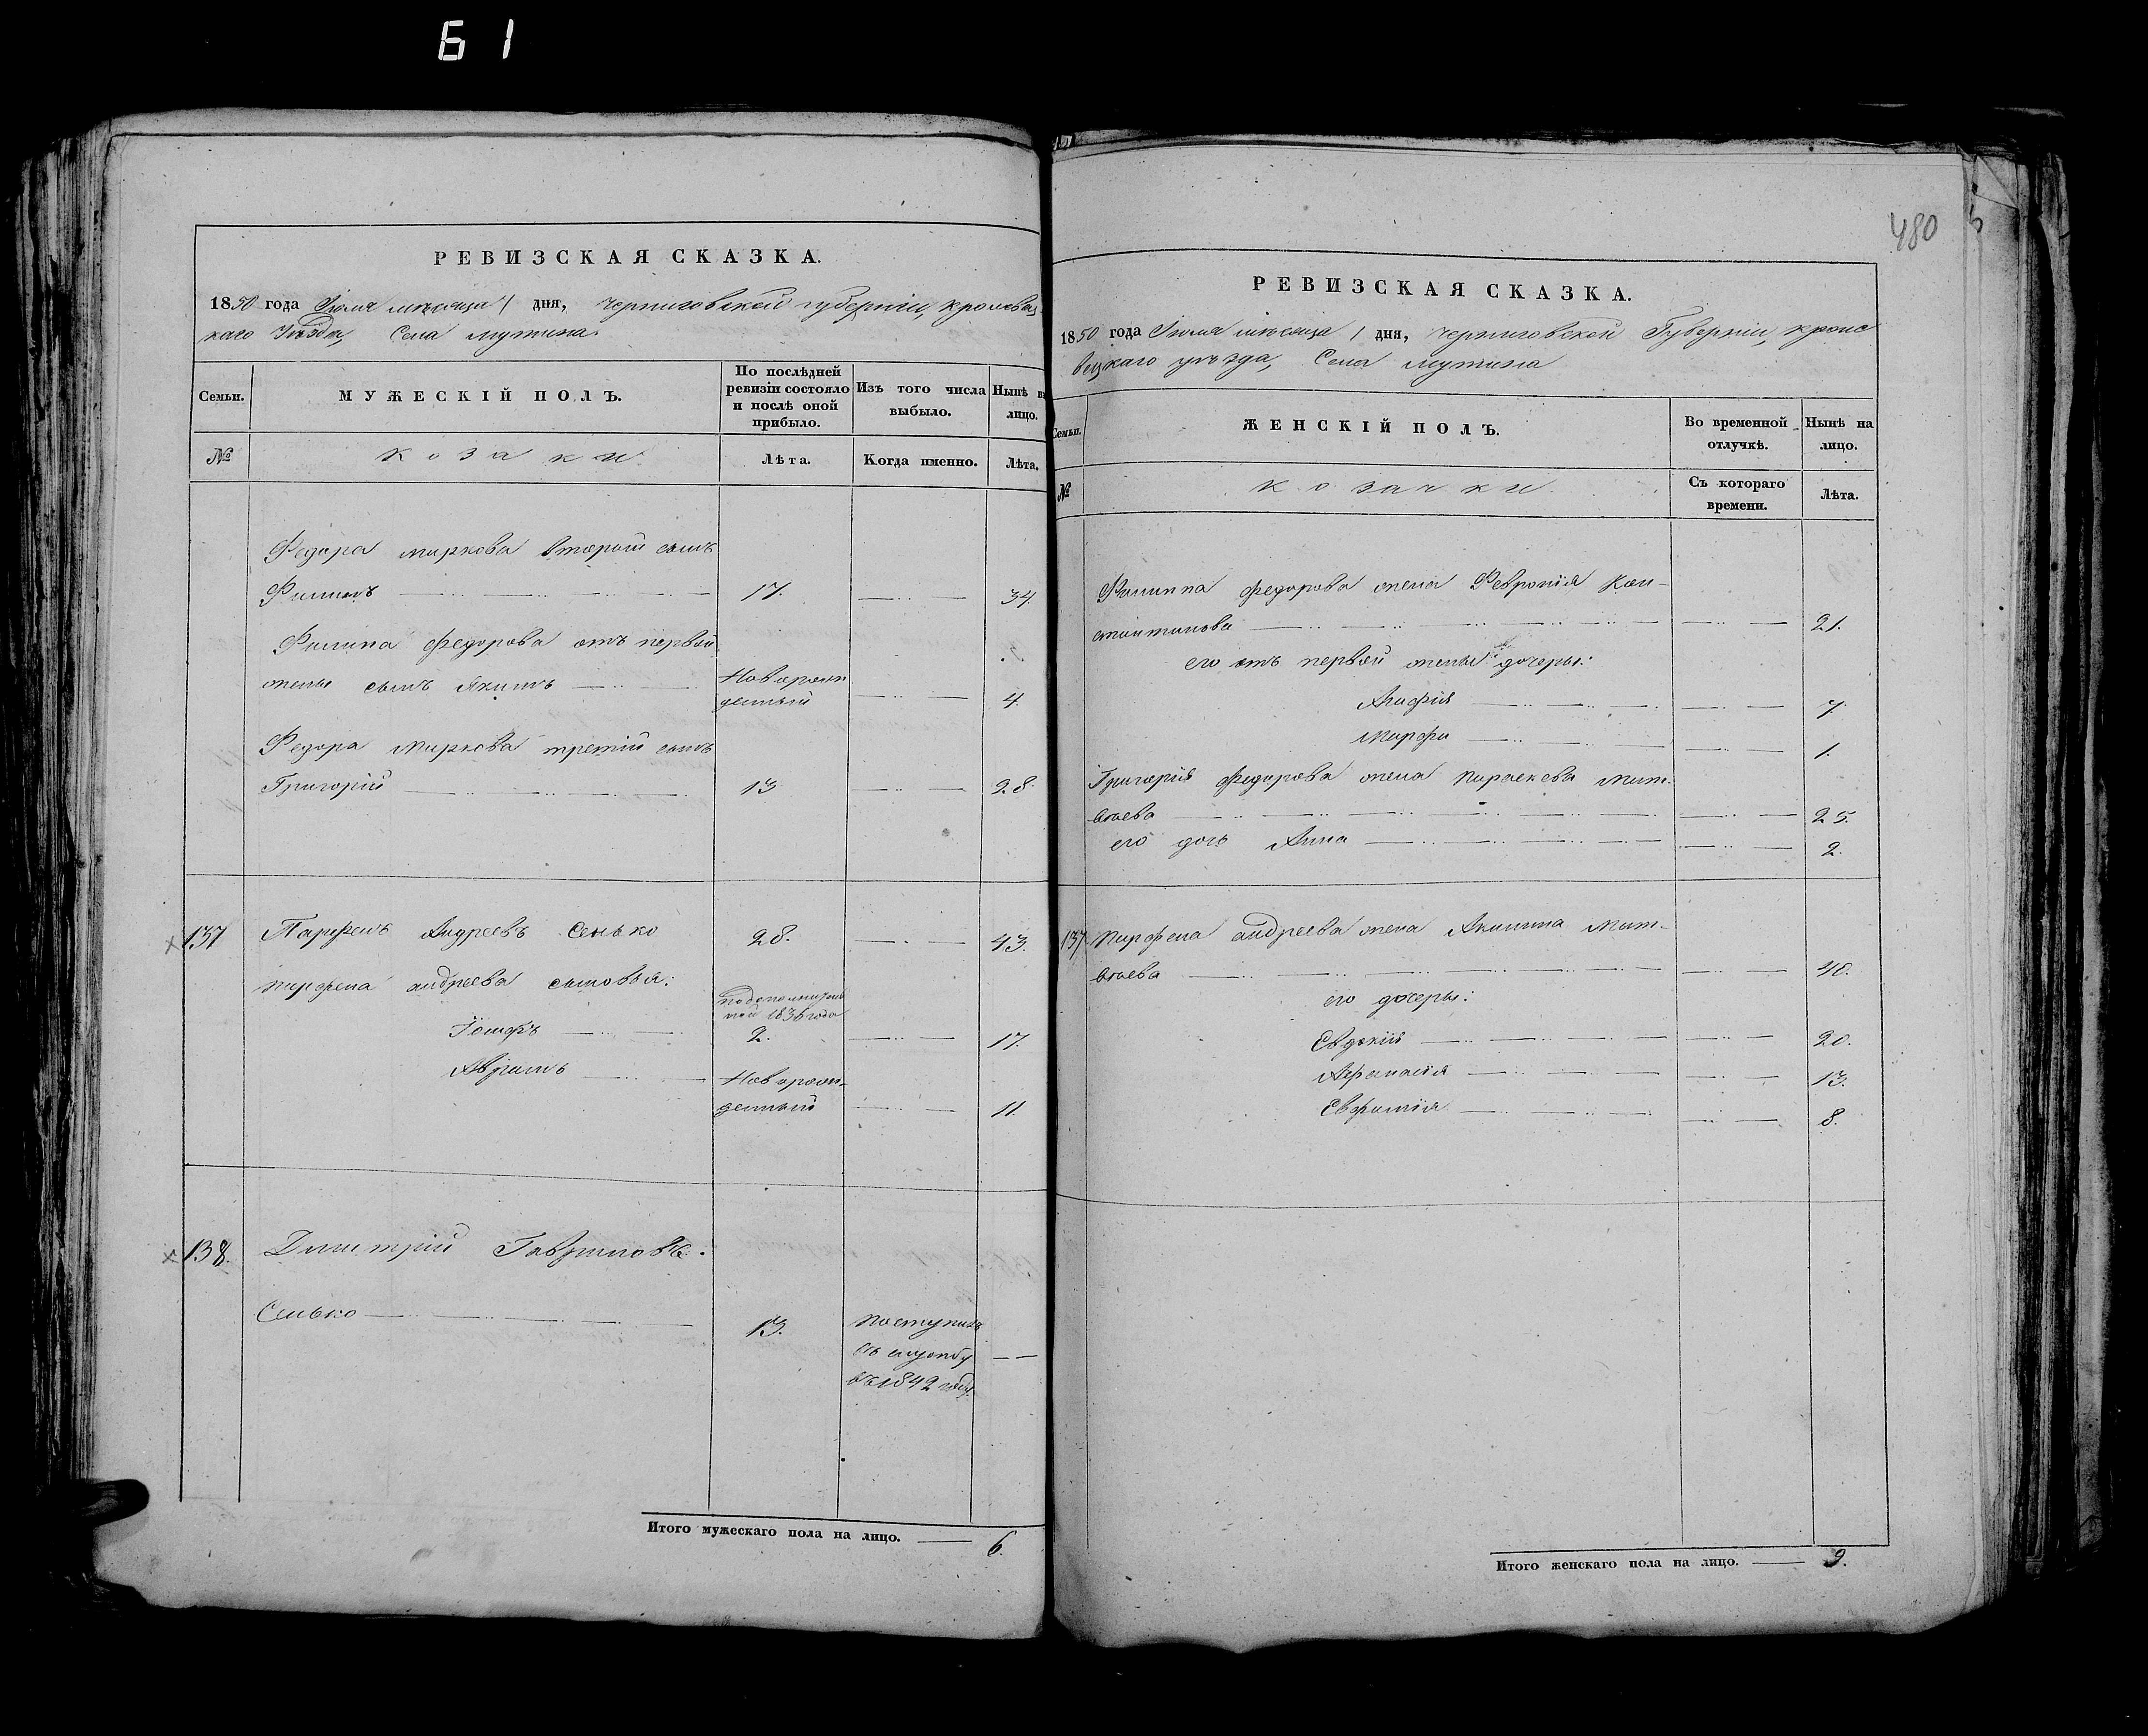 61
РЕВИЗСКАЯ СКАЗКА.
1850 года Июля мѣсяца 1 дня, Черниговской губерніи, Кролевец
каго Уѣзда, Села Мутина
Семьи.
МУЖЕСКІЙ ПОЛЪ.
По послѣдней ревизіи состояло и послѣ оной прибыло.
Изъ того числа выбыло.
Нынѣ на лицо.
№
козаки
Лѣта.
Когда именно.
Лѣта.
Федора Маркова вторый сынъ
Филипъ 17. 34.
Филипа Федорова отъ первой
жены сынъ Якимъ Новорож
денный 4.
Федора Маркова третій сынъ
Григорій 13 28.
137 Парфенъ Андреевъ Сенько 28. 43.
Парфена Андреева сыновья:
подополнитель
ной 1836 года
Іосифъ 2. 17.
Абрамъ Новорож-
денный 11.
138. Димитрій Гавриловъ
Сенько 13. Поступилъ
въ службу
въ 1842 году.
Итого мужескаго пола на лицо. 6.
480
РЕВИЗСКАЯ СКАЗКА.
1850 года Июля мѣсяца 1 дня, Черниговской Губерніи, Кроле
вецкаго уѣзда, Села Мутина
Семьи.
ЖЕНСКІЙ ПОЛЪ.
Во временной отлучкѣ.
Нынѣ на лицо.
№
козачки
Съ котораго времени.
Лѣта.
Филиппа Федорова жена Февронія Кон-
стантинова 21.
его отъ первой жены дочеры:
Агафія 7.
Марфа 1.
Григорія Федорова жена Параскева Мат-
вѣева 25.
его дочь Анна 2.
137 Парфена Андреева жена Акилина Мат-
вѣева 40.
его дочеры:
Евдокія 20.
Афанасія 13.
Евфимія 8.
Итого женскаго пола на лицо. 9.